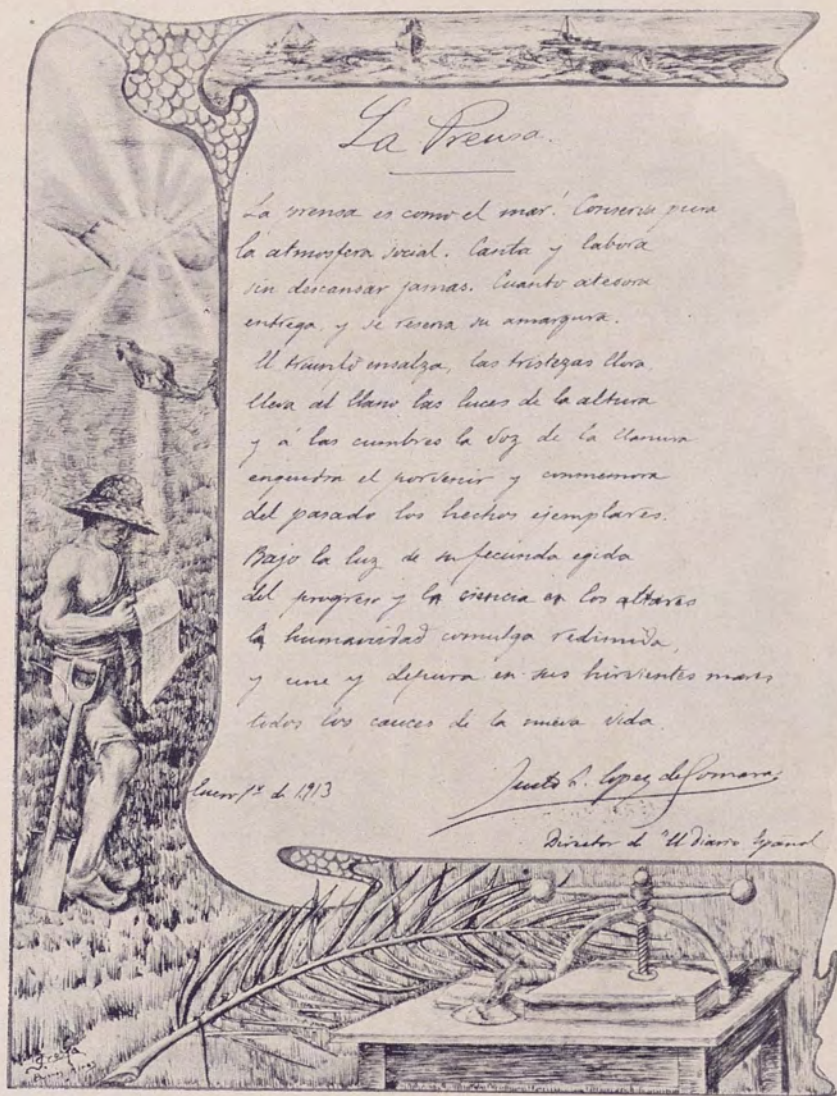 La Prensa.
La prensa es como el mar! Conserva pura
la atmosfera social. Canta y labora
sin descansar jamas. Cuanto atesora
entrega, y se reserva su amargura.
El triunfo ensalza, las tristezas llora,
lleva al llano las luces de la altura
y á las cumbres la voz de la llanura
engendra el porvenir y conmemora
del pasado los hechos ejemplares.
Bajo la luz de su fecunda egida
del progreso y la ciencia en los altares
la humanidad comulga redimida,
y une y depura en sus hirvientes mares
todos los cauces de la nueva vida.
Enero 1º de 1913
Justo S. Lopez de Gomara
Director de "El Diario Español
Buenos Aires